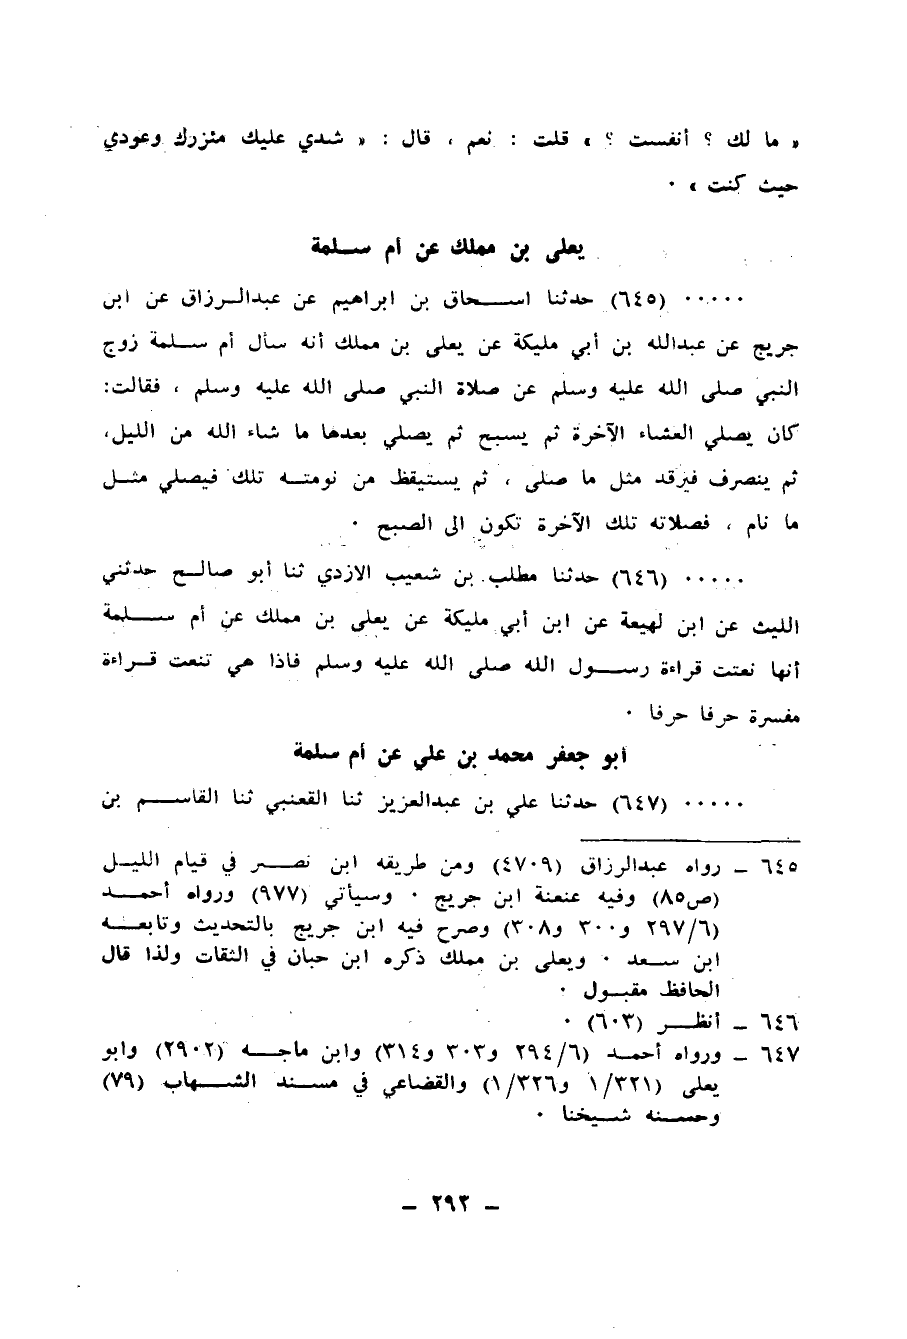 « ما لك ؟ أنفست ؟ » قلت : نعم ، قال : « شدي عليك مئزرك وعودي
حيث كنت » ٠
يعلى بن مملك عن أم سلمة
٠٠٠٠٠ (٦٤٥) حدثنا اسحاق بن ابراهيم عن عبدالرزاق عن ابن
جريج عن عبدالله بن أبي مليكة عن يعلى بن مملك أنه سأل أم سلمة زوج
النبي صلى الله عليه وسلم عن صلاة النبي صلى الله عليه وسلم ، فقالت:
كان يصلي العشاء الآخرة ثم يسبح ثم يصلي بعدها ما شاء الله من الليل،
ثم ينصرف فيرقد مثل ما صلى ، ثم يستيقظ من نومته تلك فيصلي مثل
ما نام ، فصلاته تلك الآخرة تكون الى الصبح ٠
٠٠٠٠٠ (٦٤٦) حدثنا مطلب بن شعيب الازدي ثنا أبو صالح حدثني
الليث عن ابن لهيعة عن ابن أبي مليكة عن يعلى بن مملك عن أم سلمة
أنها نعتت قراءة رسول الله صلى الله عليه وسلم فاذا هي تنعت قراءة
مفسرة حرفا حرفا ٠
أبو جعفر محمد بن علي عن أم سلمة
٠٠٠٠٠ (٦٤٧) حدثنا علي بن عبدالعزيز ثنا القعنبي ثنا القاسم بن
٦٤٥ ـ رواه عبدالرزاق (٤٧٠٩) ومن طريقه ابن نصر في قيام الليل
(ص٨٥) وفيه عنعنة ابن جريج ٠ وسيأتي (٩٧٧) ورواه أحمد
(٢٩٧/٦ و٣٠٠ و٣٠٨) وصرح فيه ابن جريج بالتحديث وتابعه
ابن سعد ٠ ويعلى بن مملك ذكره ابن حبان في الثقات ولذا قال
الحافظ مقبول ٠
٦٤٦ ـ أنظر (٦٠٣) ٠
٦٤٧ ـ ورواه أحمد (٢٩٤/٦ و٣٠٣ و٣١٤) وابن ماجه (٢٩٠٢) وابو
يعلى (١/٣٢١ و١/٣٢٦) والقضاعي في مسند الشهاب (٧٩)
وحسنه شيخنا ٠
ـ ٢٩٢ ـ